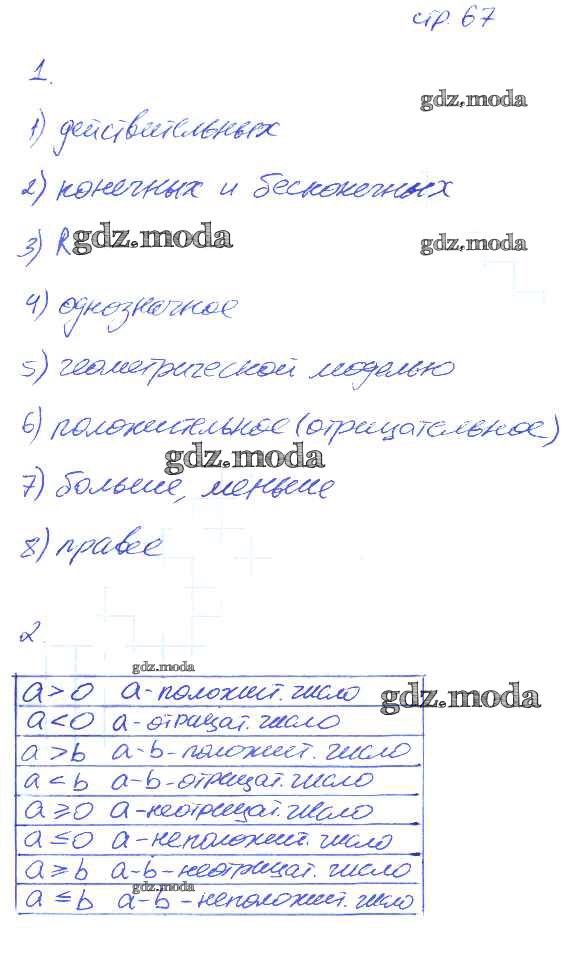 стр. 67
1.
gdz.moda
1) действительных
2) конечных и бесконечных
3) R
gdz.moda
gdz.moda
4) однозначное
5) геометрической моделью
6) положительное (отрицательное)
gdz.moda
7) больше, меньше
8) правее
2.
gdz.moda
a > 0 a - положит. число
gdz.moda
a < 0 a - отрицат. число
a > b a - b - положит. число
a < b a - b - отрицат. число
a ≥ 0 a - неотрицат. число
a ≤ 0 a - неположит. число
a ≥ b a - b - неотрицат. число
gdz.moda
a ≤ b a - b - неположит. число